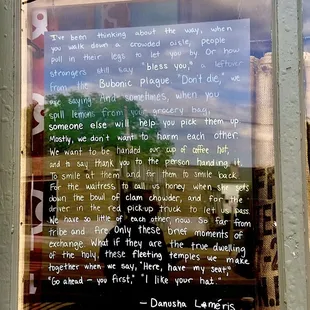 I've been thinking about the way, when
you walk down a crowded aisle, people
pull in their legs to let you by. Or how
strangers still say "bless you," a leftover
from the Bubonic plague. "Don't die," we
are saying. And sometimes, when you
spill lemons from your grocery bag,
someone else will help you pick them up.
Mostly, we don't want to harm each other.
We want to be handed our cup of coffee hot,
and to say thank you to the person handing it.
To smile at them and for them to smile back.
For the waitress to call us honey when she sets
down the bowl of clam chowder, and for the
driver in the red pick-up truck to let us pass.
We have so little of each other, now. So far from
tribe and fire. Only these brief moments of
exchange. What if they are the true dwelling
of the holy, these fleeting temples we make
together when we say, "Here, have my seat,"
"Go ahead - you first," "I like your hat."
- Danusha Laméris